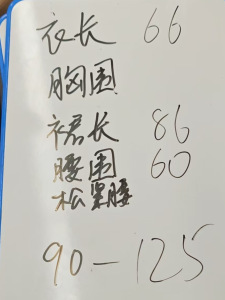 衣长 66
胸围
裙长 86
腰围 60
松累腰
90-125